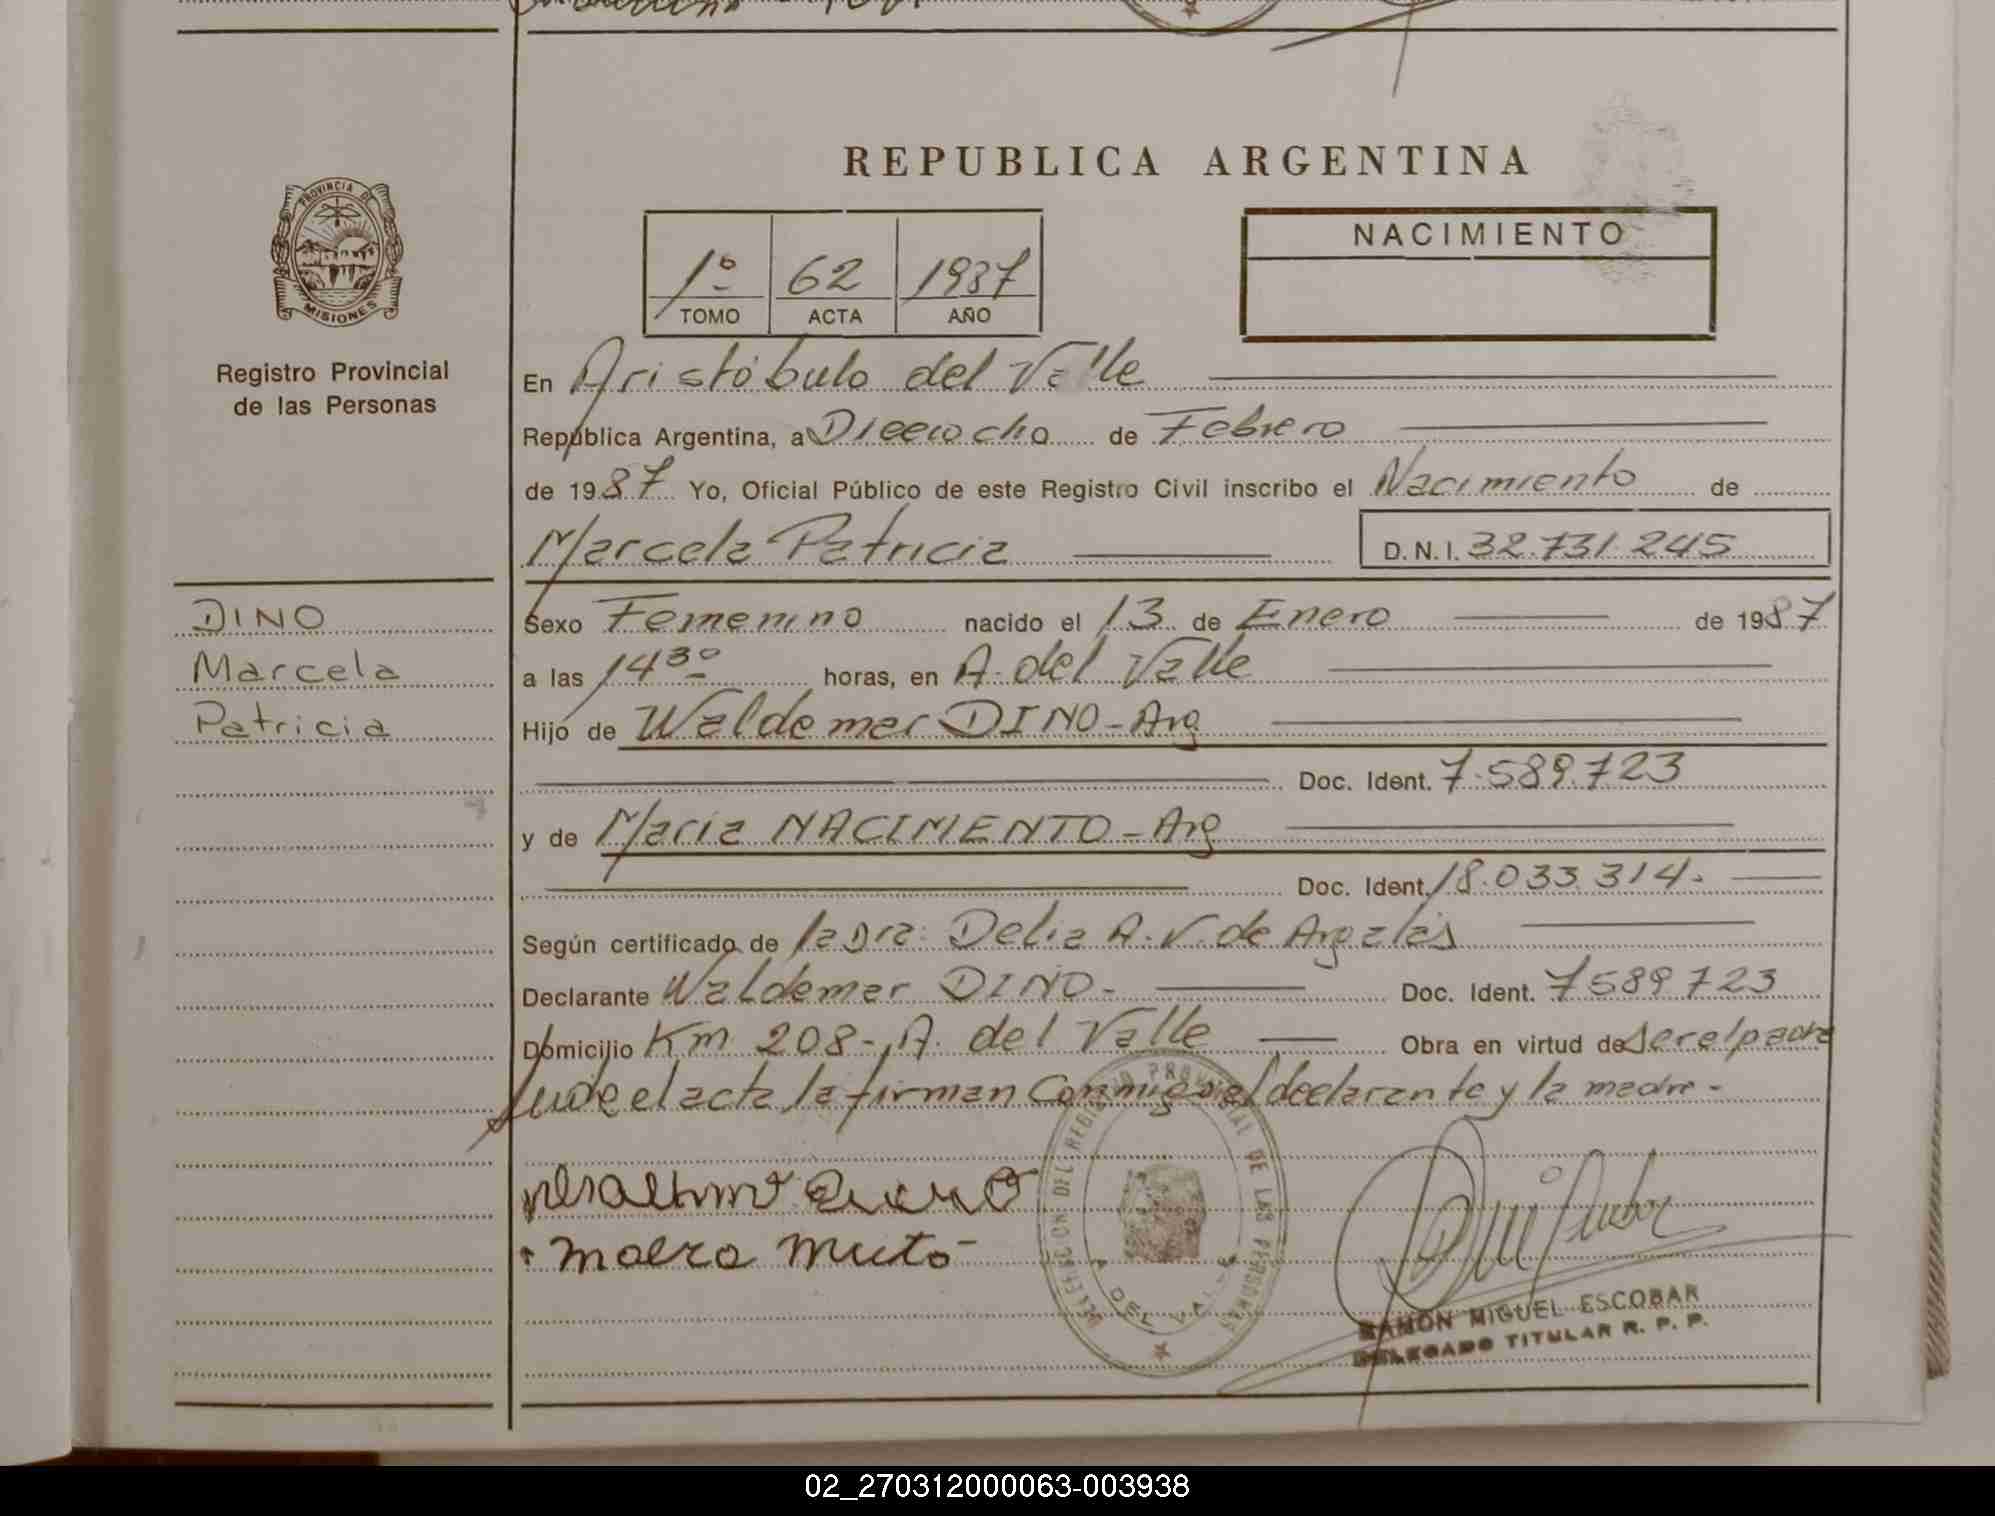 PROVINCIA DE
MISIONES
Registro Provincial
de las Personas
DINO
Marcela
Patricia
REPUBLICA ARGENTINA
1º 62 1987
TOMO ACTA AÑO
NACIMIENTO
En Aristóbulo del Valle
República Argentina, a Dieciocho de Febrero
de 1987 Yo, Oficial Público de este Registro Civil inscribo el Nacimiento de
Marcela Patricia D. N. I. 32.731.245
Sexo Femenino nacido el 13 de Enero de 1987
a las 14 30 horas, en A. del Valle
Hijo de Waldemar DINO - Arg
Doc. Ident. 7.589.723
y de Maria NACIMIENTO - Arg
Doc. Ident. 18.033.314.
Según certificado de la Dra: Delia A. V. de
Declarante Waldemar DINO - Doc. Ident. 7589723
Domicilio Km 208 - A. del Valle Obra en virtud de ser el padre
el acta la firman Conmigo el declarante y la madre -
DELEGACION DEL REGISTRO PROVINCIAL DE LAS PERSONAS
A. DEL VALLE
RAMON MIGUEL ESCOBAR
DELEGADO TITULAR R. P. P.
02_270312000063-003938